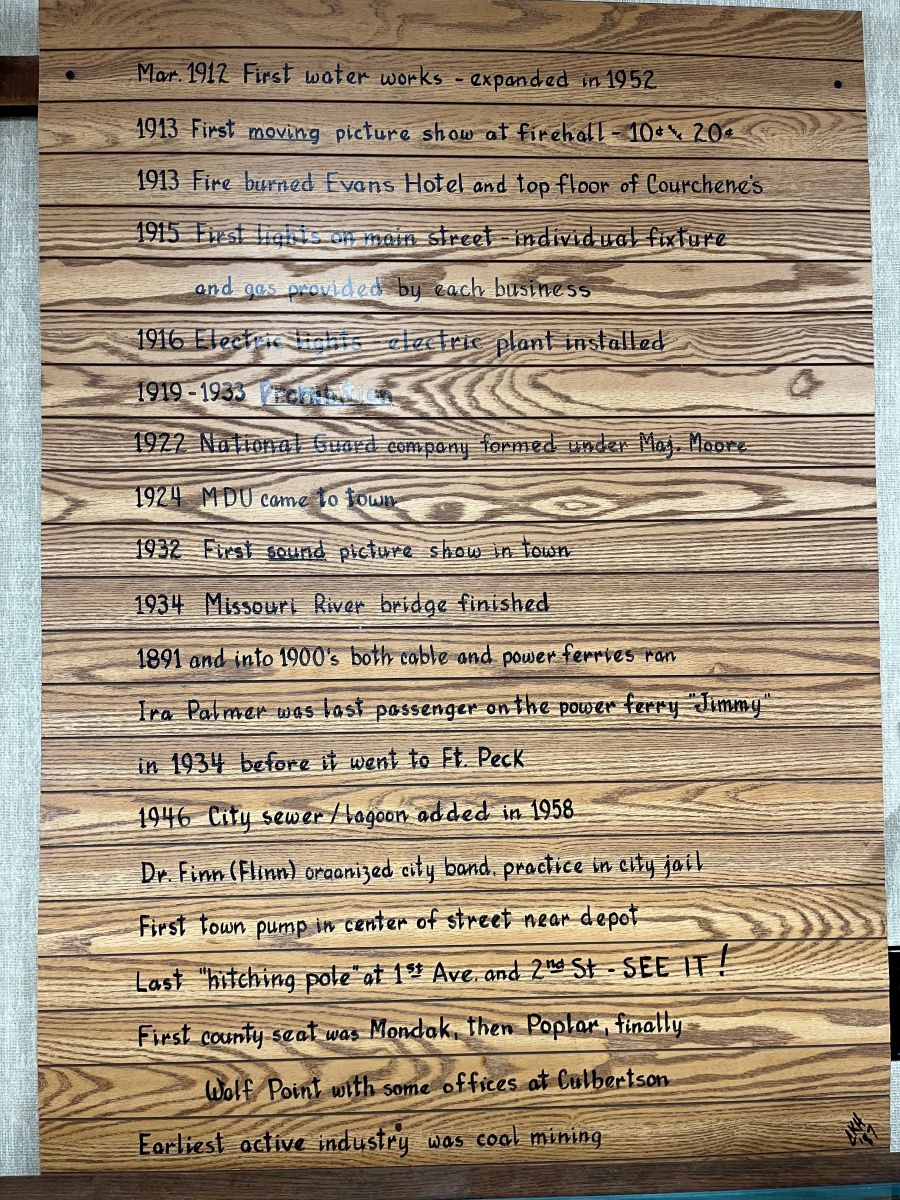 Mar. 1912 First water works - expanded in 1952
1913 First moving picture show at firehall - 10¢ & 20¢
1913 Fire burned Evans Hotel and top floor of Courchene's
1915 First lights on main street - individual fixture
and gas provided by each business
1916 Electric lights - electric plant installed
1919 - 1933 Prohibition
1922 National Guard company formed under Maj. Moore
1924 MDU came to town
1932 First sound picture show in town
1934 Missouri River bridge finished
1891 and into 1900's both cable and power ferries ran
Ira Palmer was last passenger on the power ferry "Jimmy"
in 1934 before it went to Ft. Peck
1946 City sewer / lagoon added in 1958
Dr. Finn (Flinn) organized city band, practice in city jail
First town pump in center of street near depot
Last "hitching pole" at 1st Ave. and 2nd St - SEE IT!
First county seat was Mondak, then Poplar, finally
Wolf Point with some offices at Culbertson
Earliest active industry was coal mining
'87